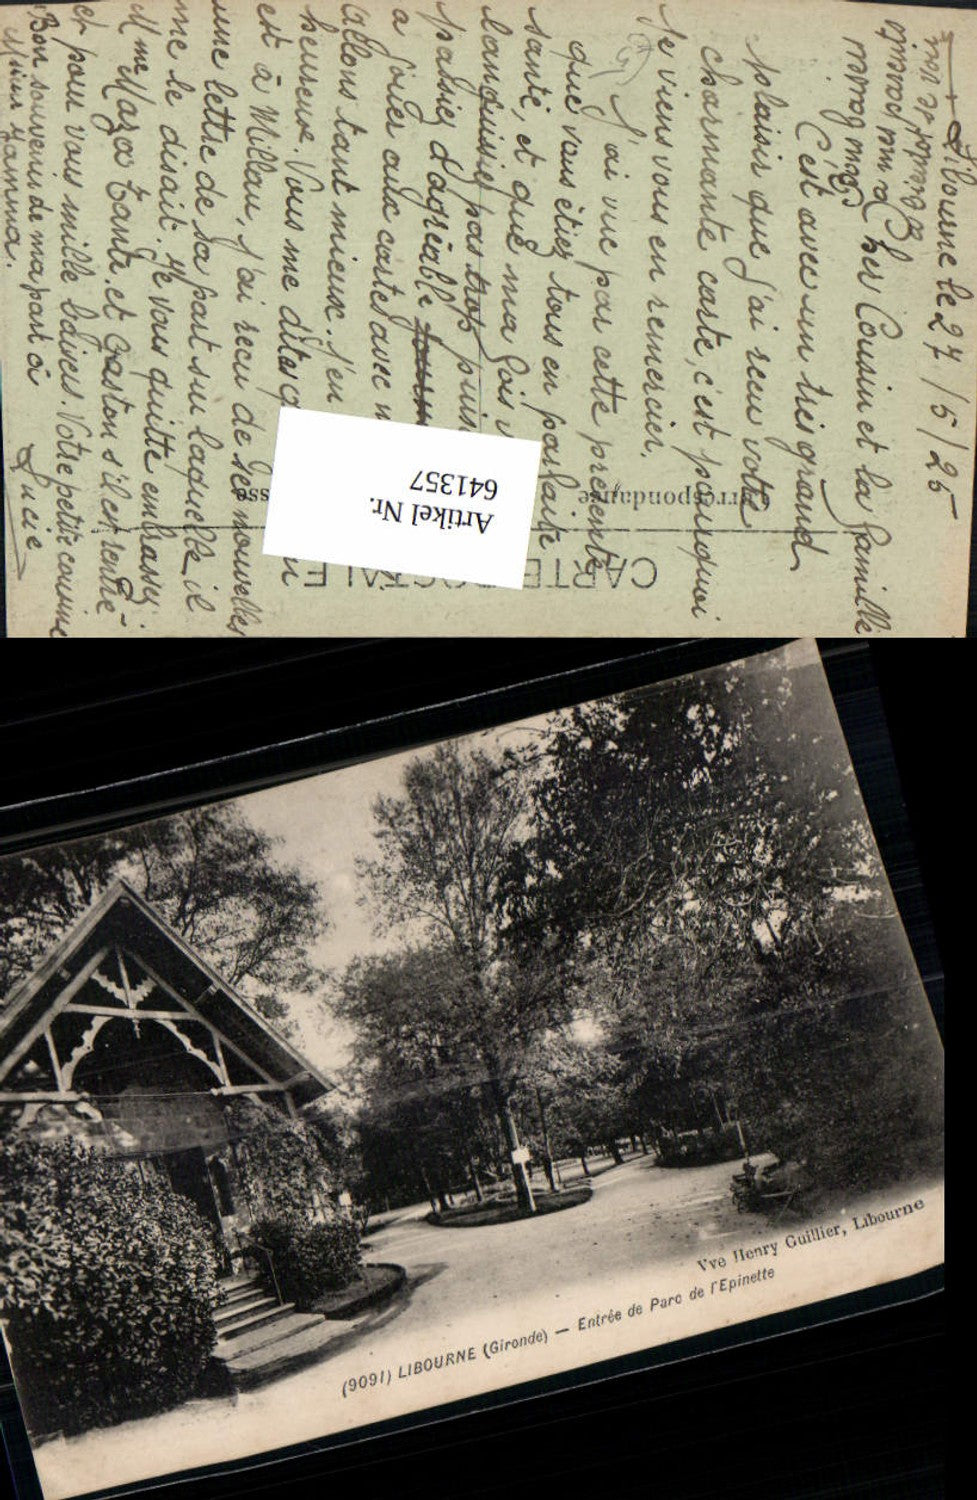 Libourne le 27/5/25
Chers Cousin et la famille
C'est avec un très grand
plaisir que j'ai reçu votre
charmante carte, c'est pourquoi
je viens vous en remercier.
J'ai vue par cette présente
que vous étiez tous en parfaite
santé, et que ma fois
languissiez pas trop puis
passiez d'agréable
a jouer aux carte avec
allons tant mieux. J'en
heureuse. Vous me dites q
est à Millau, j'ai reçu de ses nouvelles
une lettre de sa part sur laquelle il
me le disait. Je vous quitte embrassez
Mme Mazas tante, et Gaston s'il est rentré
et pour vous mille baisers. Votre petite cousine
Bon souvenir de ma part à
Lucie
CARTE POSTALE
Correspondance
sse
Artikel Nr.
641357
Vve Henry Guillier, Libourne
(9091) LIBOURNE (Gironde) — Entrée de Parc de l'Epinette